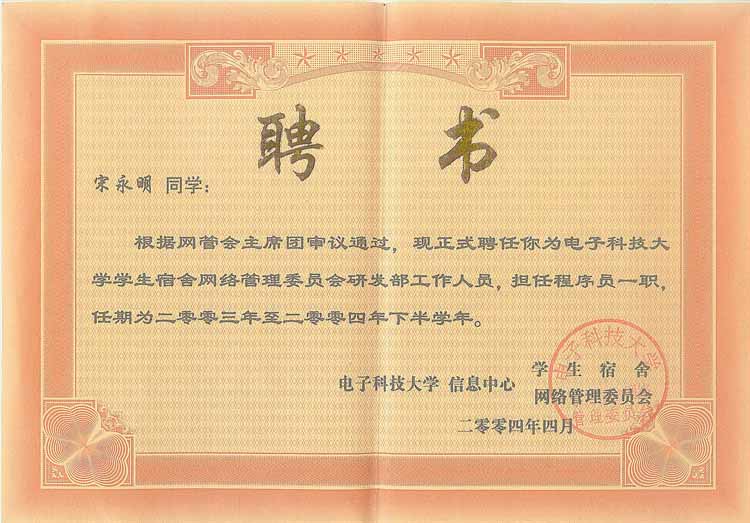 聘 书
宋永明 同学：
根据网管会主席团审议通过，现正式聘任你为电子科技大
学学生宿舍网络管理委员会研发部工作人员，担任程序员一职，
任期为二零零三年至二零零四年下半学年。
学 生 宿 舍
电子科技大学 信息中心
网络管理委员会
二零零四年四月
电子科技大学
管理委员会